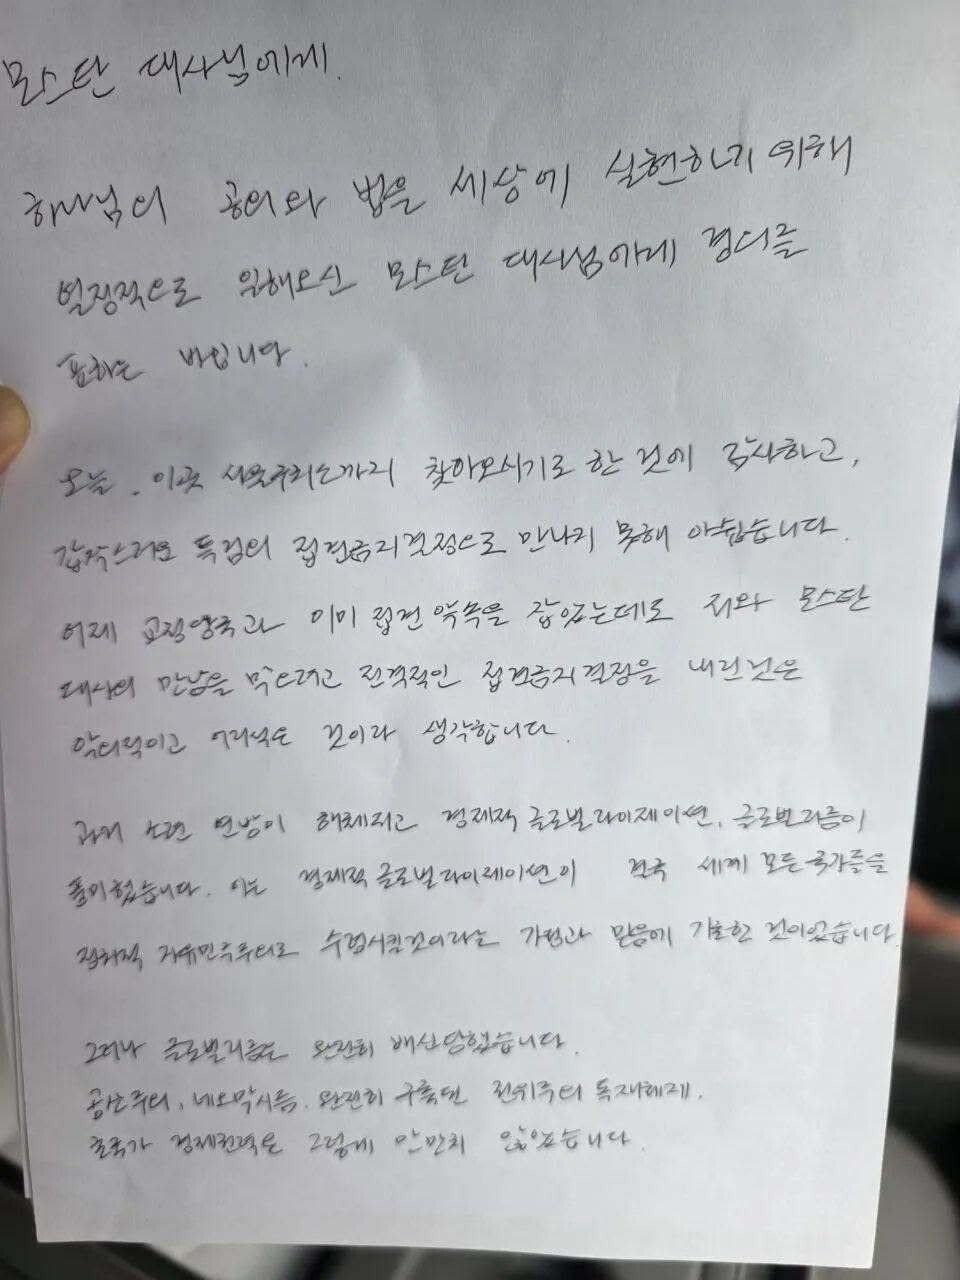 모스탄 대사님에게.
하나님의 공의와 법을 세상에 실현하기 위해
열정적으로 일해오신 모스탄 대사님에게 경의를
표하는 바입니다.
오늘, 이곳 서울구치소까지 찾아오시기로 한 것에 감사하고,
갑작스러운 특검의 접견금지결정으로 만나지 못해 아쉽습니다.
어제 교정당국과 이미 접견 약속을 잡았는데도 저와 모스탄
대사의 만남을 막으려고 전격적인 접견금지결정을 내린 것은
악의적이고 어리석은 것이라 생각합니다.
과거 소련 연방이 해체되고 경제적 글로벌라이제이션, 글로벌리즘이
풍미했습니다. 이는 경제적 글로벌라이제이션이 결국 세계 모든 국가들을
정치적 자유민주주의로 수렴시킬것이라는 가정과 믿음에 기초한 것이었습니다.
그러나 글로벌리즘은 완전히 배신당했습니다.
공산주의, 네오막시즘, 완전히 구축된 전위주의 독재체제,
초국가 경제권력은 그렇게 만만치 않았습니다.